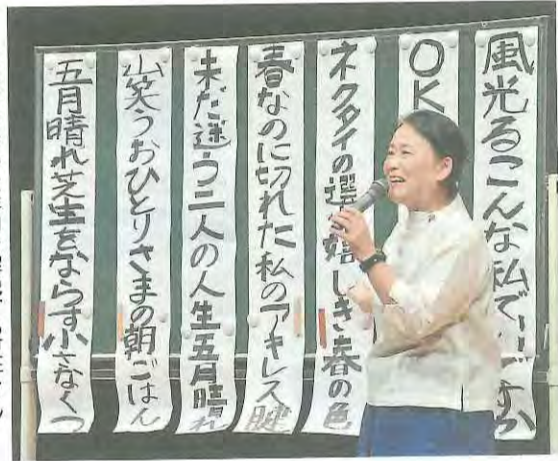 風光るこんな私で
OK
ネクタイの選 嬉しき春の色
春なのに切れた私のアキレス腱
未だ迷う二人の人生五月晴れ
山笑うおひとりさまの朝ごはん
五月晴れ芝生をならす小さなくつ